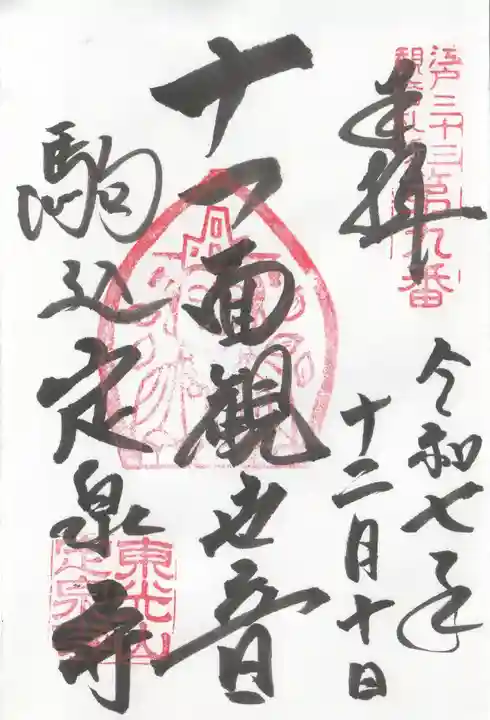 奉拝
江戸三十三ヶ所
観音札所第九番
令和七年
十二月十日
十一面観世音
駒込定泉寺
東光山
定泉寺